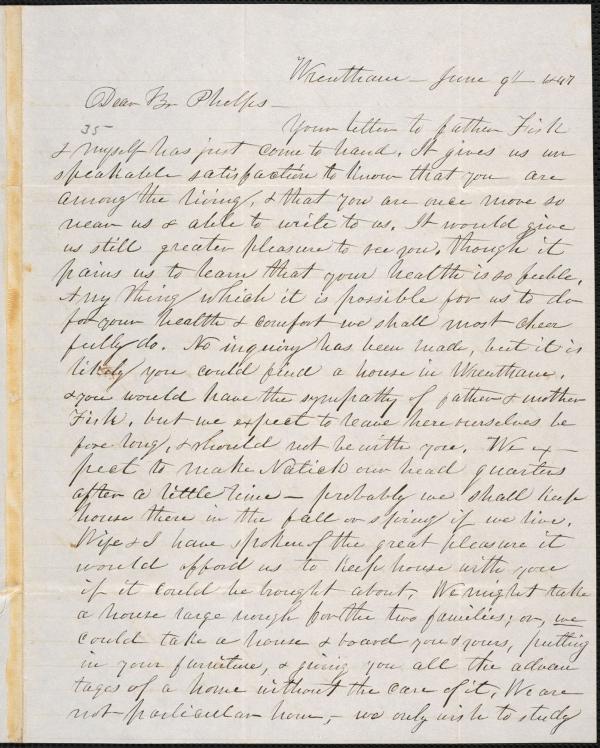 Wrentham - June 9th 1847
Dear Br Phelps -
35
Your letter to father Fisk
& myself has just come to hand. It gives us un
speakable satisfaction to know that you are
among the living, & that you are once more so
near us & able to write to us. It would give
us still greater pleasure to see you, though it
pains us to learn that your health is so feeble.
Any thing which it is possible for us to do
for your health & comfort we shall most cheer
fully do. No inquiry has been made, but it is
likely you could find a house in Wrentham,
& you would have the sympathy of father & mother
Fisk, but we expect to leave here ourselves be
fore long, & should not be with you. We ex-
pect to make Natick our head quarters
after a little time - probably we shall keep
house there in the fall or spring if we live.
Wife & I have spoken of the great pleasure it
would afford us to keep house with you
if it could be brought about. We might take
a house large nough for the two families; or, we
could take a house & board you & yours, putting
in your furniture, & giving you all the advan
tages of a home without the care of it. We are
not particular how, - we only wish to study